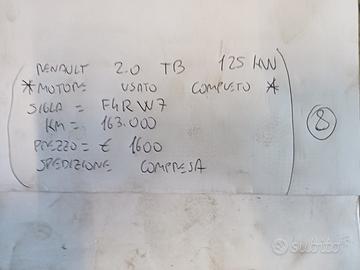 RENAULT 2.0 TB 125 KW
* MOTORE USATO COMPLETO *
SIGLA = F4R W7
KM = 163.000
PREZZO = € 1600
SPEDIZIONE COMPRESA
8
subito